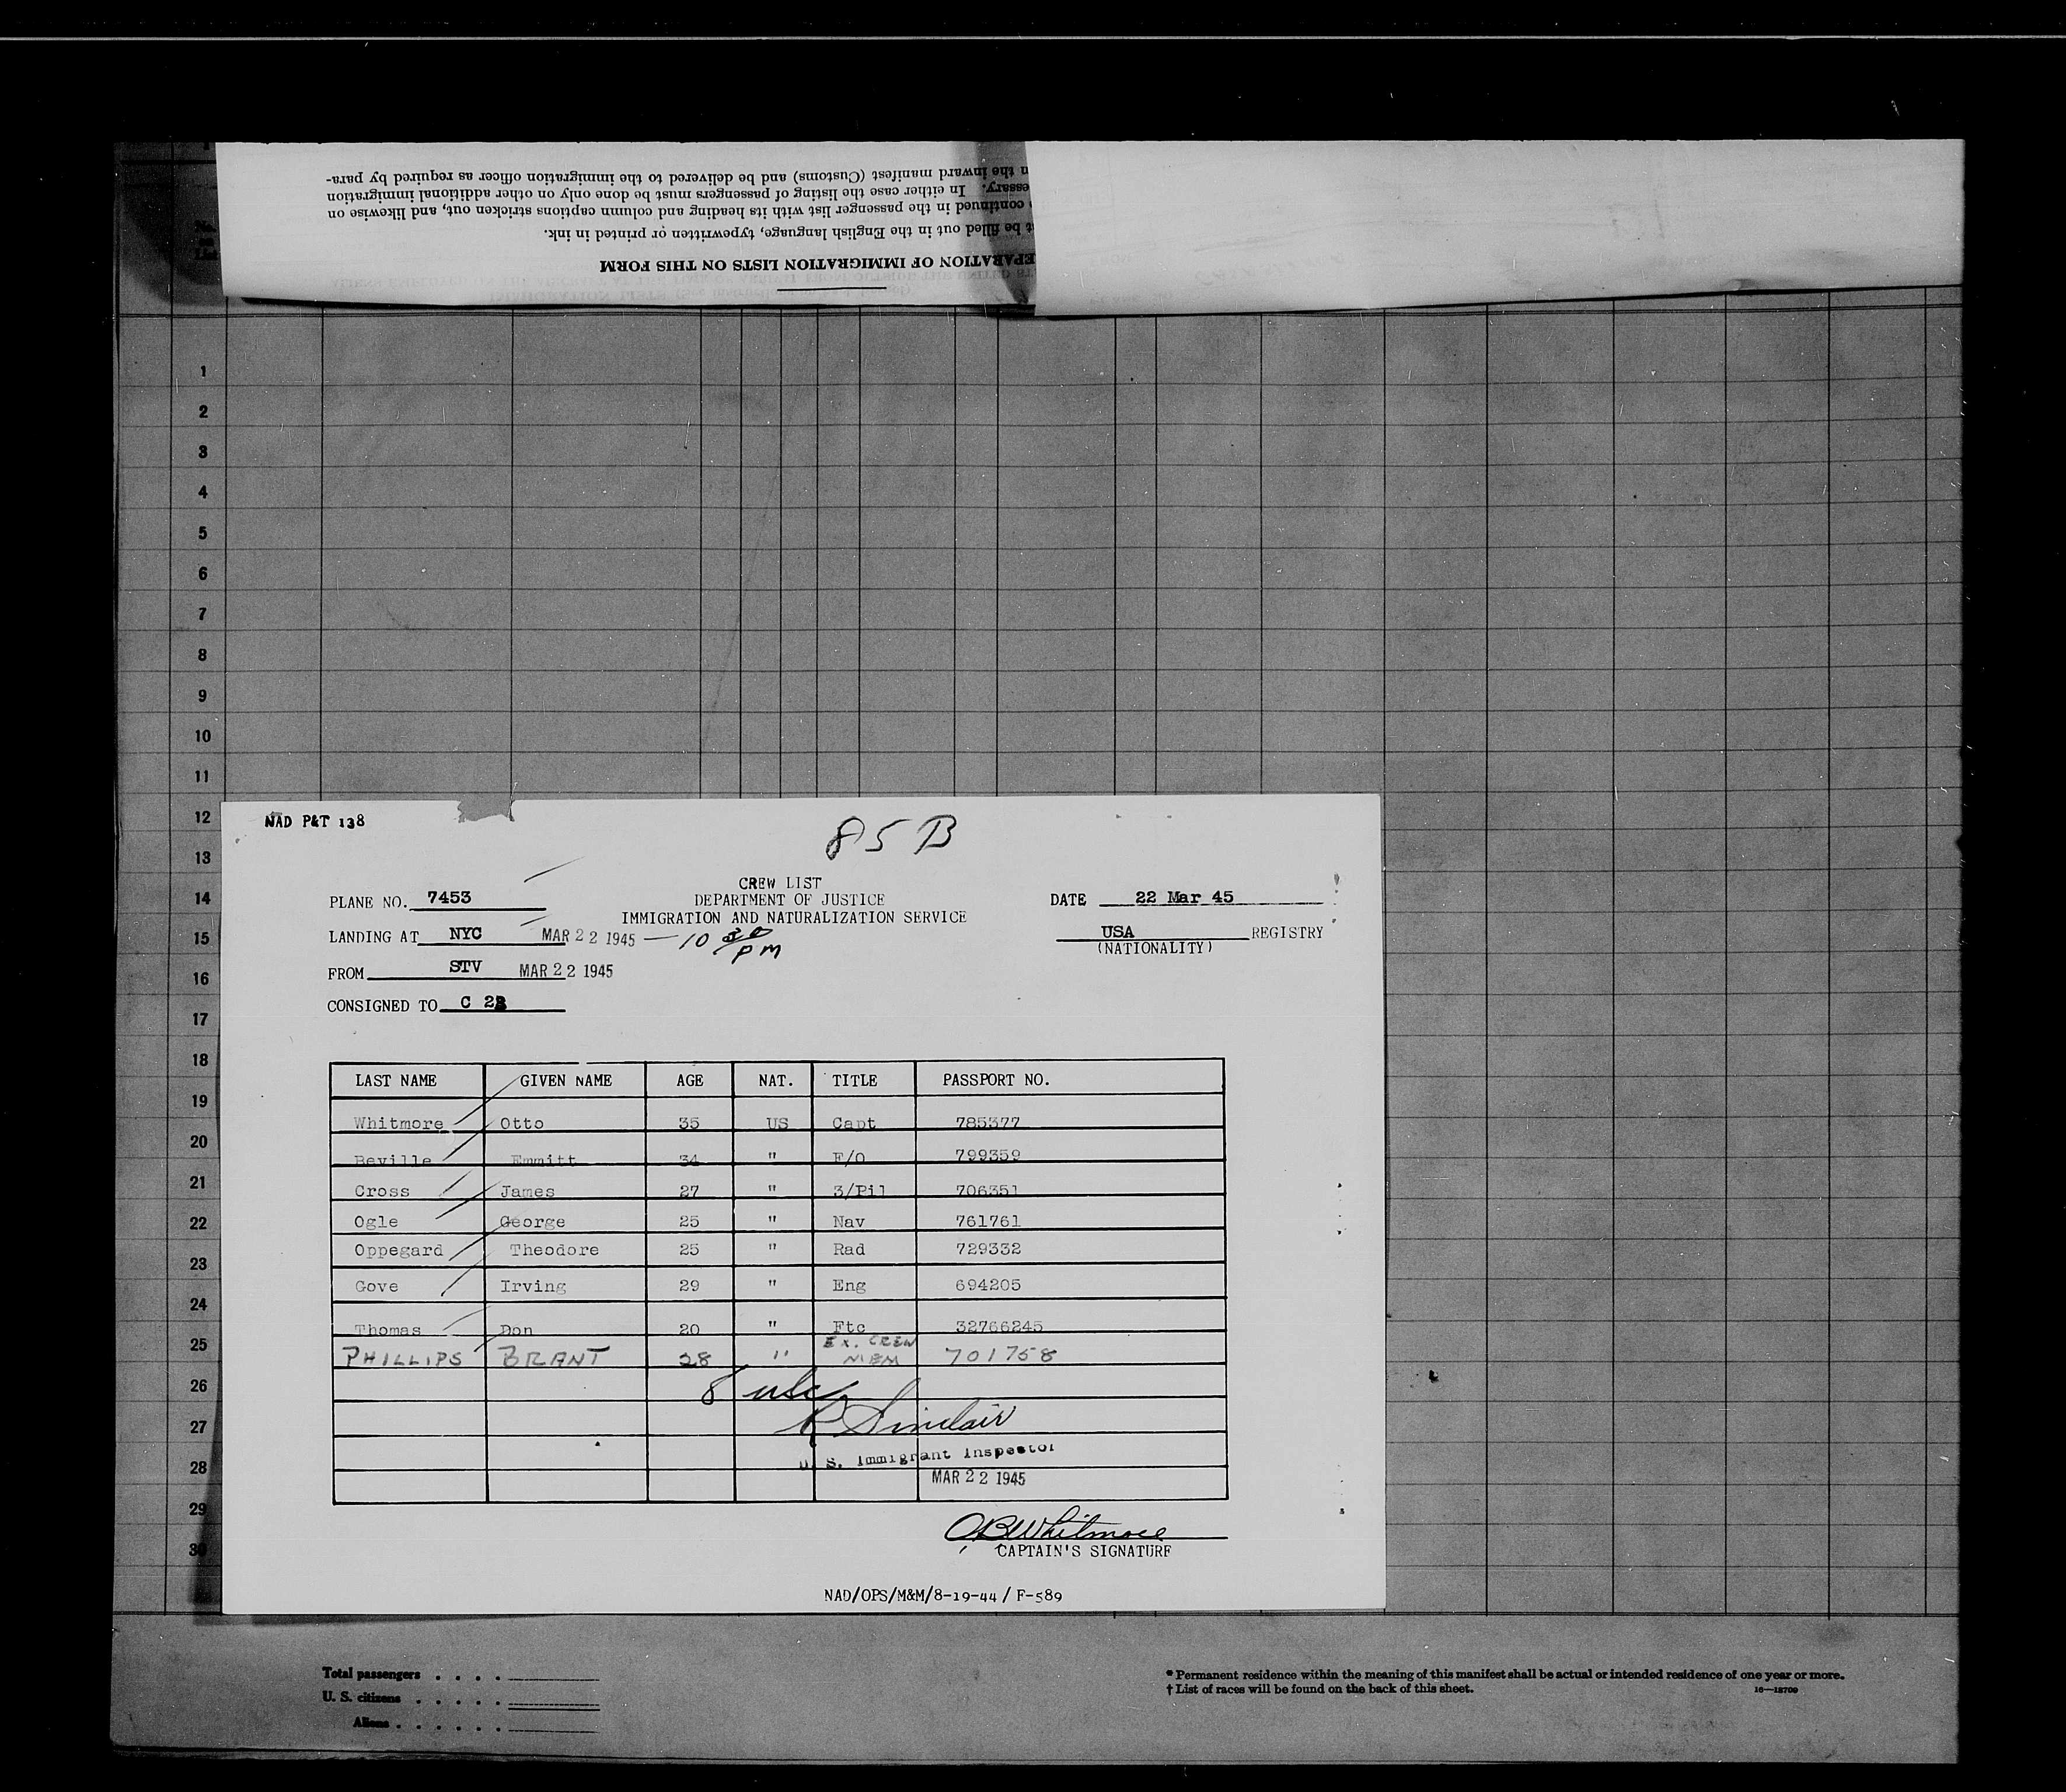 n the inward manifest (Customs) and be delivered to the immigration officer as required by para-
essary. In either case the listing of passengers must be done only on other additional immigration
continued in the passenger list with its heading and column captions stricken out, and likewise on
t be filled out in the English language, typewritten or printed in ink.
EPARATION OF IMMIGRATION LISTS ON THIS FORM
1
2
3
4
5
6
7
8
9
10
11
12
13
14
15
16
17
18
19
20
21
22
23
24
25
26
27
28
29
30
NAD P&T 138
85 B
CREW LIST
PLANE NO. 7453 DEPARTMENT OF JUSTICE DATE 22 Mar 45
IMMIGRATION AND NATURALIZATION SERVICE
LANDING AT NYC MAR 22 1945 — 10 30 PM USA REGISTRY
(NATIONALITY)
FROM STV MAR 22 1945
CONSIGNED TO C 22
LAST NAME GIVEN NAME AGE NAT. TITLE PASSPORT NO.
Whitmore Otto 35 US Capt 785377
Beville Emmitt 34 " F/O 799359
Cross James 27 " 3/Pil 706351
Ogle George 25 " Nav 761761
Oppegard Theodore 25 " Rad 729332
Gove Irving 29 " Eng 694205
Thomas Don 20 " Ftc 32766245
PHILLIPS BRANT 28 " EX. CREW MEM 701758
8 usc
R Sinclair
U. S. Immigrant Inspector
MAR 22 1945
O B Whitmore
CAPTAIN'S SIGNATURE
NAD/OPS/M&M/8-19-44 / F-589
Total passengers . . . .
U. S. citizens . . . . .
Aliens . . . . . .
* Permanent residence within the meaning of this manifest shall be actual or intended residence of one year or more.
† List of races will be found on the back of this sheet. 16—18709